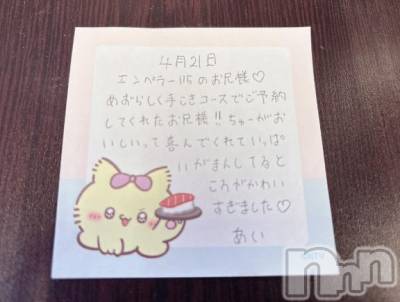 4月21日
エンペラー115のお兄様♡
めずらしく手こきコースでご予約
してくれたお兄様!!ちゅーがお
いしいって喜んでくれていっぱ
いがまんしてると
ころがかわい
すぎました♡
あい